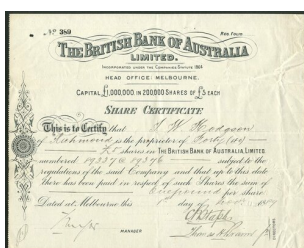 Nº 389
REG. FOLIO
THE BRITISH BANK OF AUSTRALIA
LIMITED.
INCORPORATED UNDER THE COMPANIES STATUTE 1864
HEAD OFFICE: MELBOURNE.
CAPITAL £1,000,000. IN 200,000 SHARES OF £5 EACH
SHARE CERTIFICATE
This is to Certify that W Hodgson
of Richmond is the proprietor of Forty
£5 shares in THE BRITISH BANK OF AUSTRALIA LIMITED
numbered 19337 to 19376 subject to the
regulations of the said Company and that up to this date
there has been paid in respect of such Shares the sum of
per share
Dated at Melbourne this day of
MANAGER